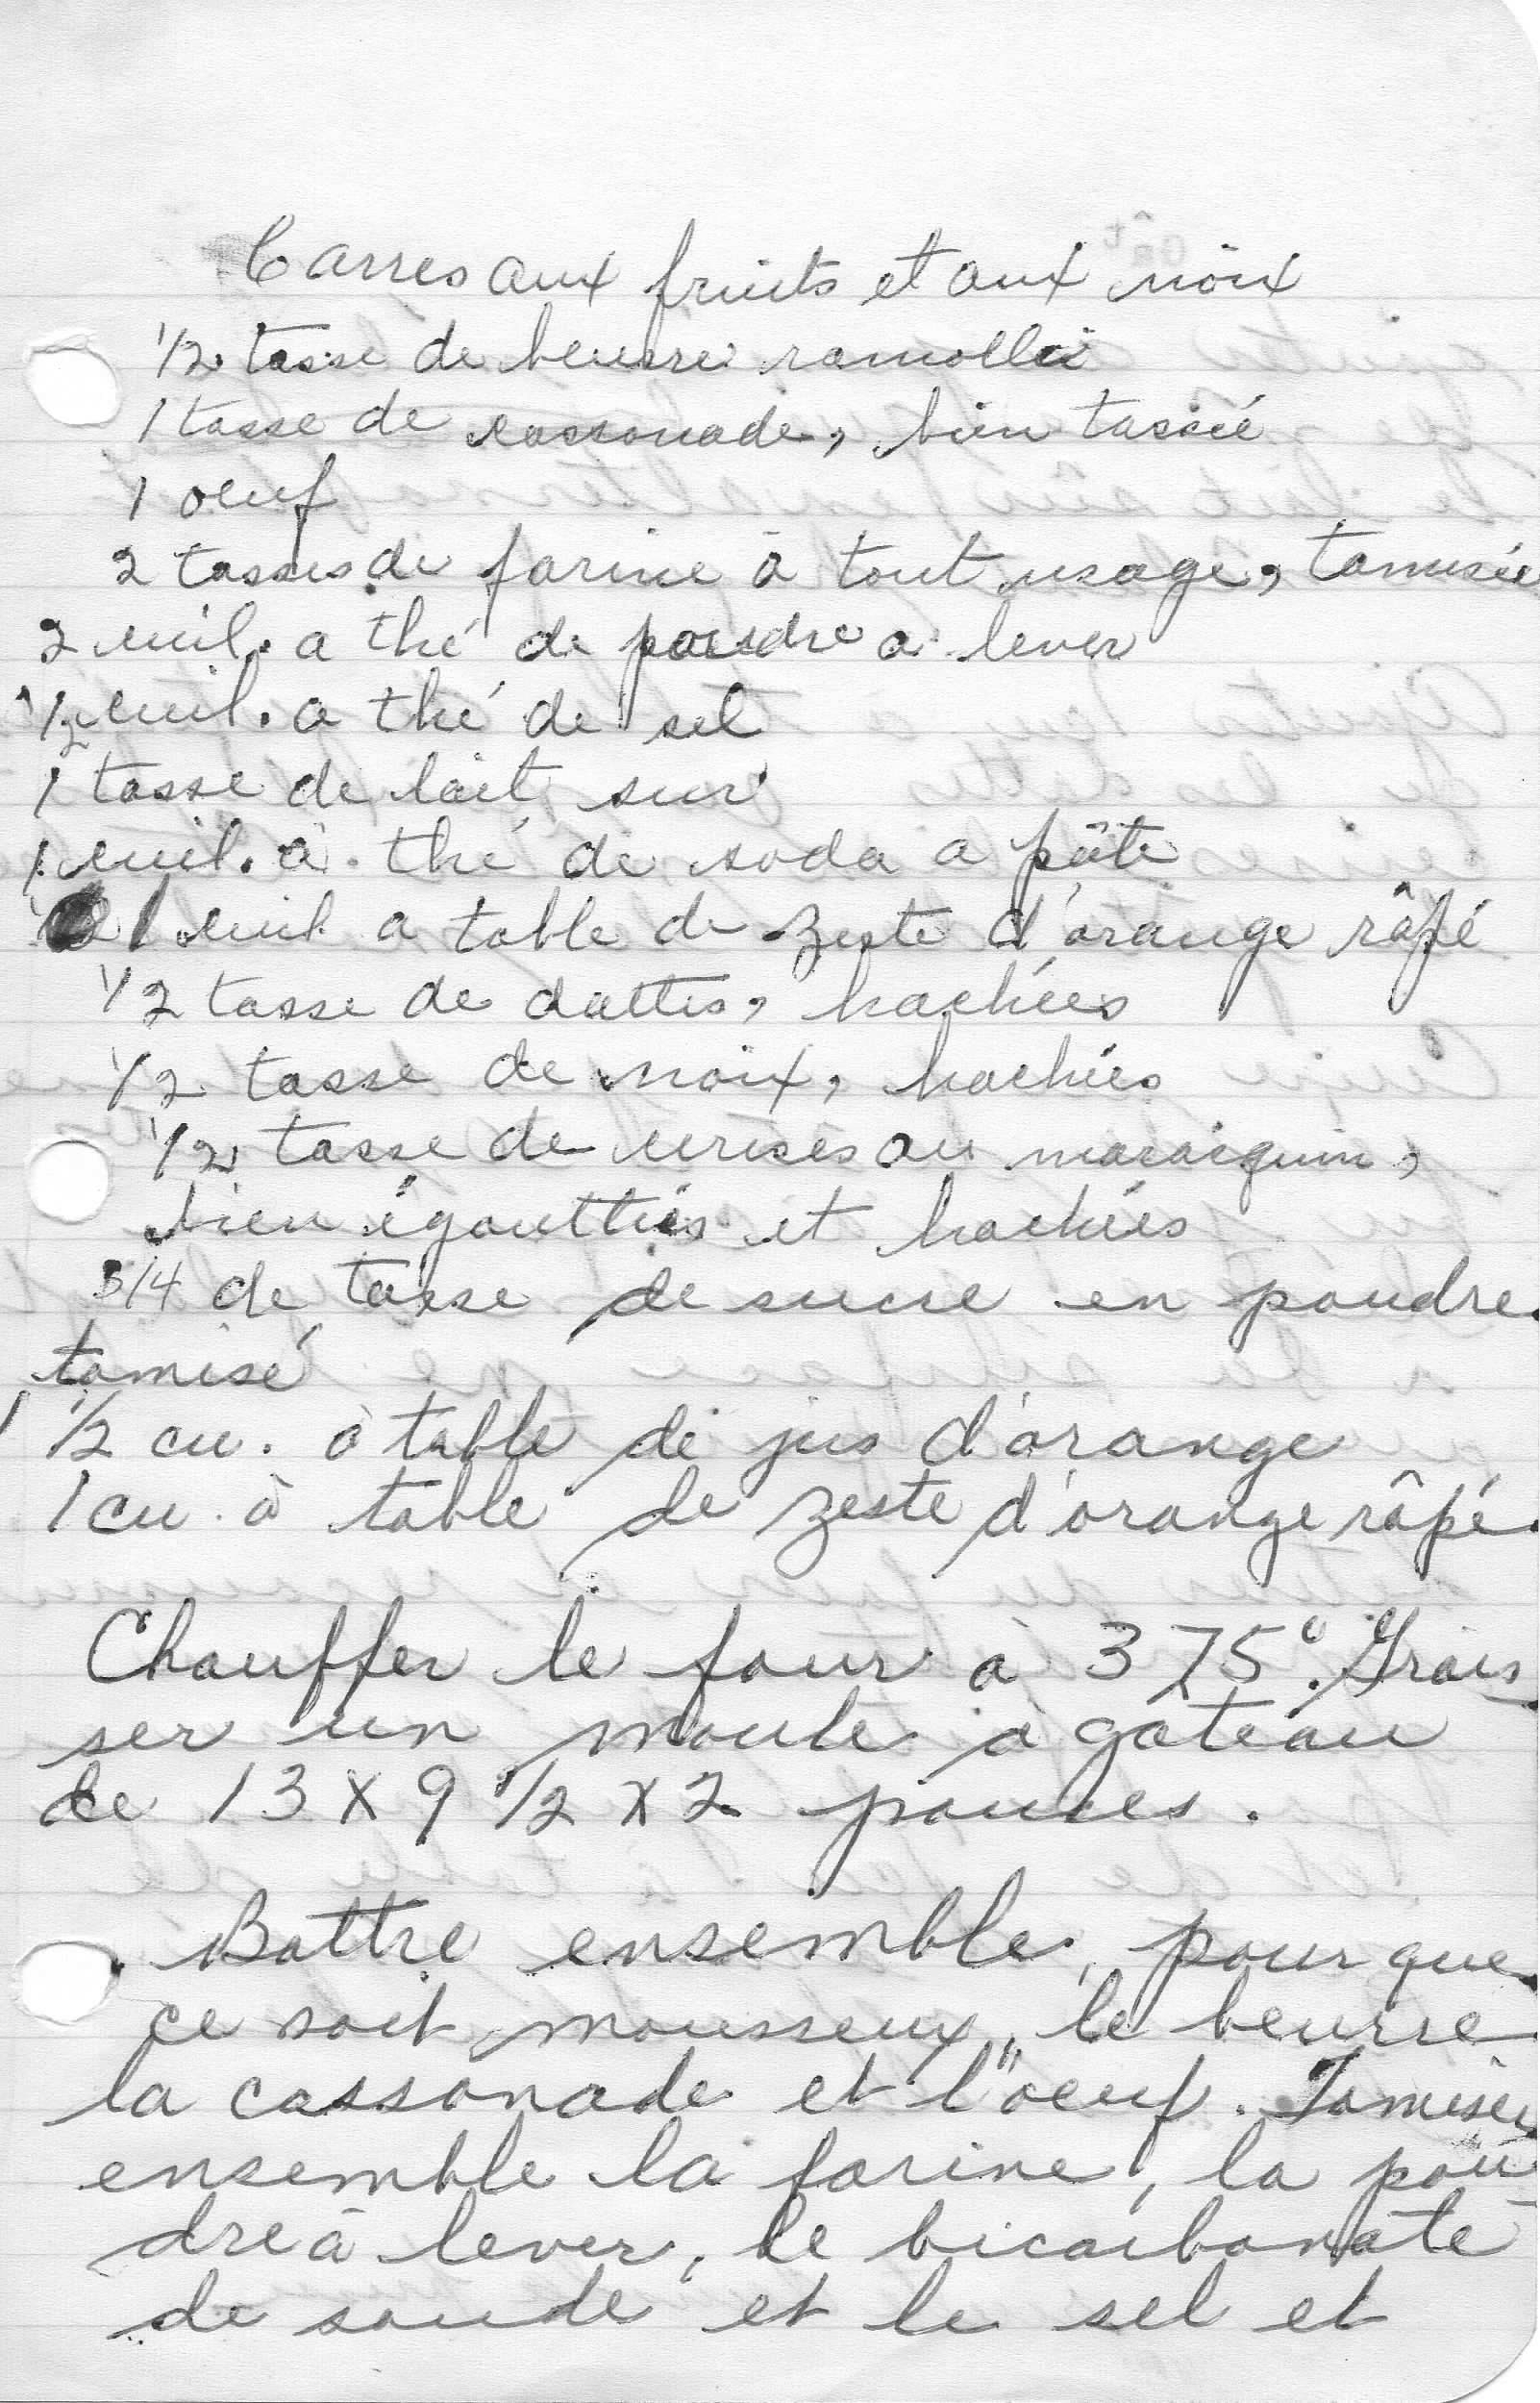 Carres aux fruits et aux noix
1/2 tasse de beurre ramolli
1 tasse de cassonade, bien tassée
1 oeuf
2 tasses de farine à tout usage, tamisée
2 cuil. a thé de poudre a lever
1/2 cuil. a thé de sel
1 tasse de lait sur
1 cuil. à thé de soda a pâte
1 cuil a table de zeste d'orange râpé
1/2 tasse de dattes, hachées
1/2 tasse de noix, hachées
1/2 tasse de cerises au marasquin,
bien égouttées et hachées
3/4 de tasse de sucre en poudre
tamisé
1 1/2 cu. à table de jus d'orange
1 cu. à table de zeste d'orange râpé.
Chauffer le four à 375°. Grais
ser un moule à gateau
de 13 x 9 1/2 x 2 pouces.
Battre ensemble, pour que
ce soit mousseux, le beurre
la cassonade et l'oeuf. Tamiser
ensemble la farine, la pou
dre à lever, le bicarbonate
de soude et le sel et